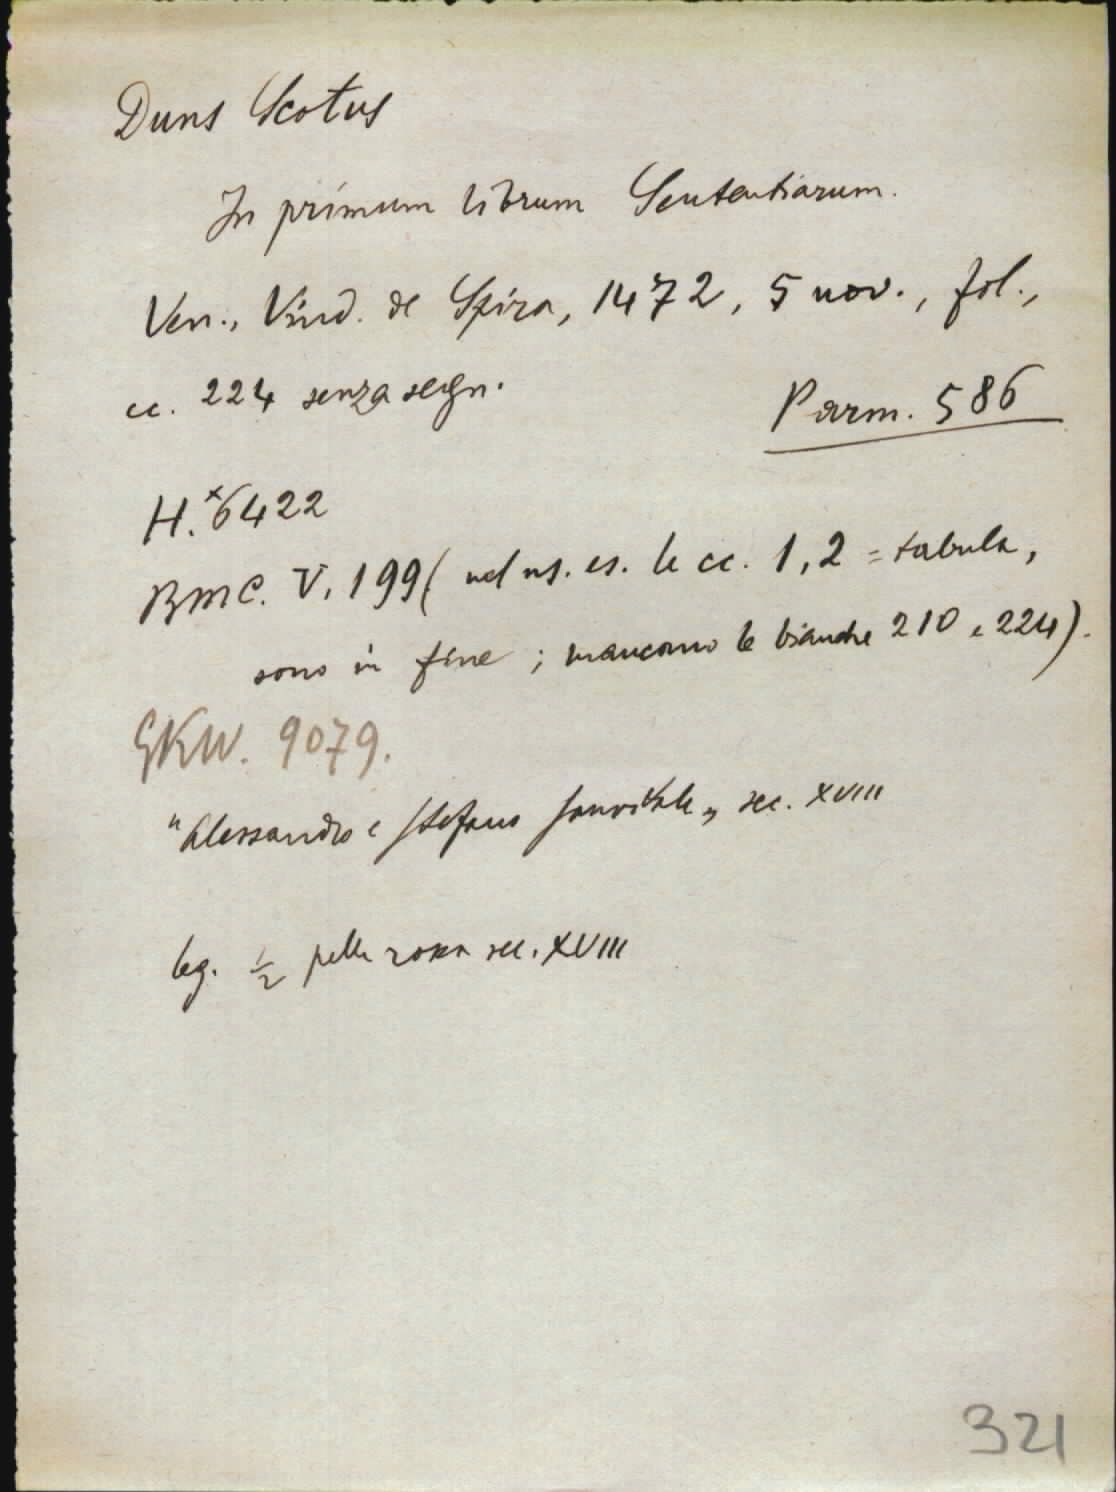 Duns Scotus
In primum librum Sententiarum.
Ven., Vind. de Spira, 1472, 5 nov., fol.,
cc. 224 senza segn.
Parm. 586
H.ˣ6422
BMC. V, 199 ( nel ns. es. le cc. 1, 2 = tabula,
sono in fine ; mancano le bianche 210 e 224).
GKW. 9079.
"Alessandro e Stefano Sanvitale„ sec. XVIII
leg. 1/2 pelle rossa sec. XVIII
321